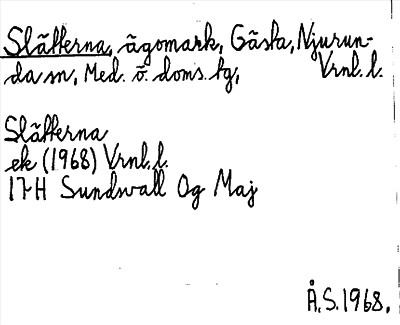 Slätterna, ägomark, Gästa, Njurun-
da sn, Med. ö. doms. hg, Vrnl. l.
Slätterna
ek (1968) Vrnl. l.
17H Sundsvall Og Maj
Å.S. 1968.